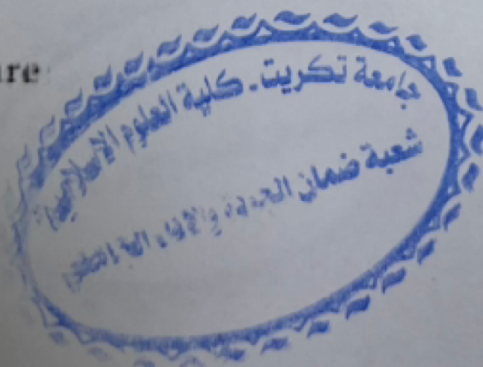 ure
جامعة تكريت - كلية العلوم الاسلامية
شعبة ضمان الجودة والاداء